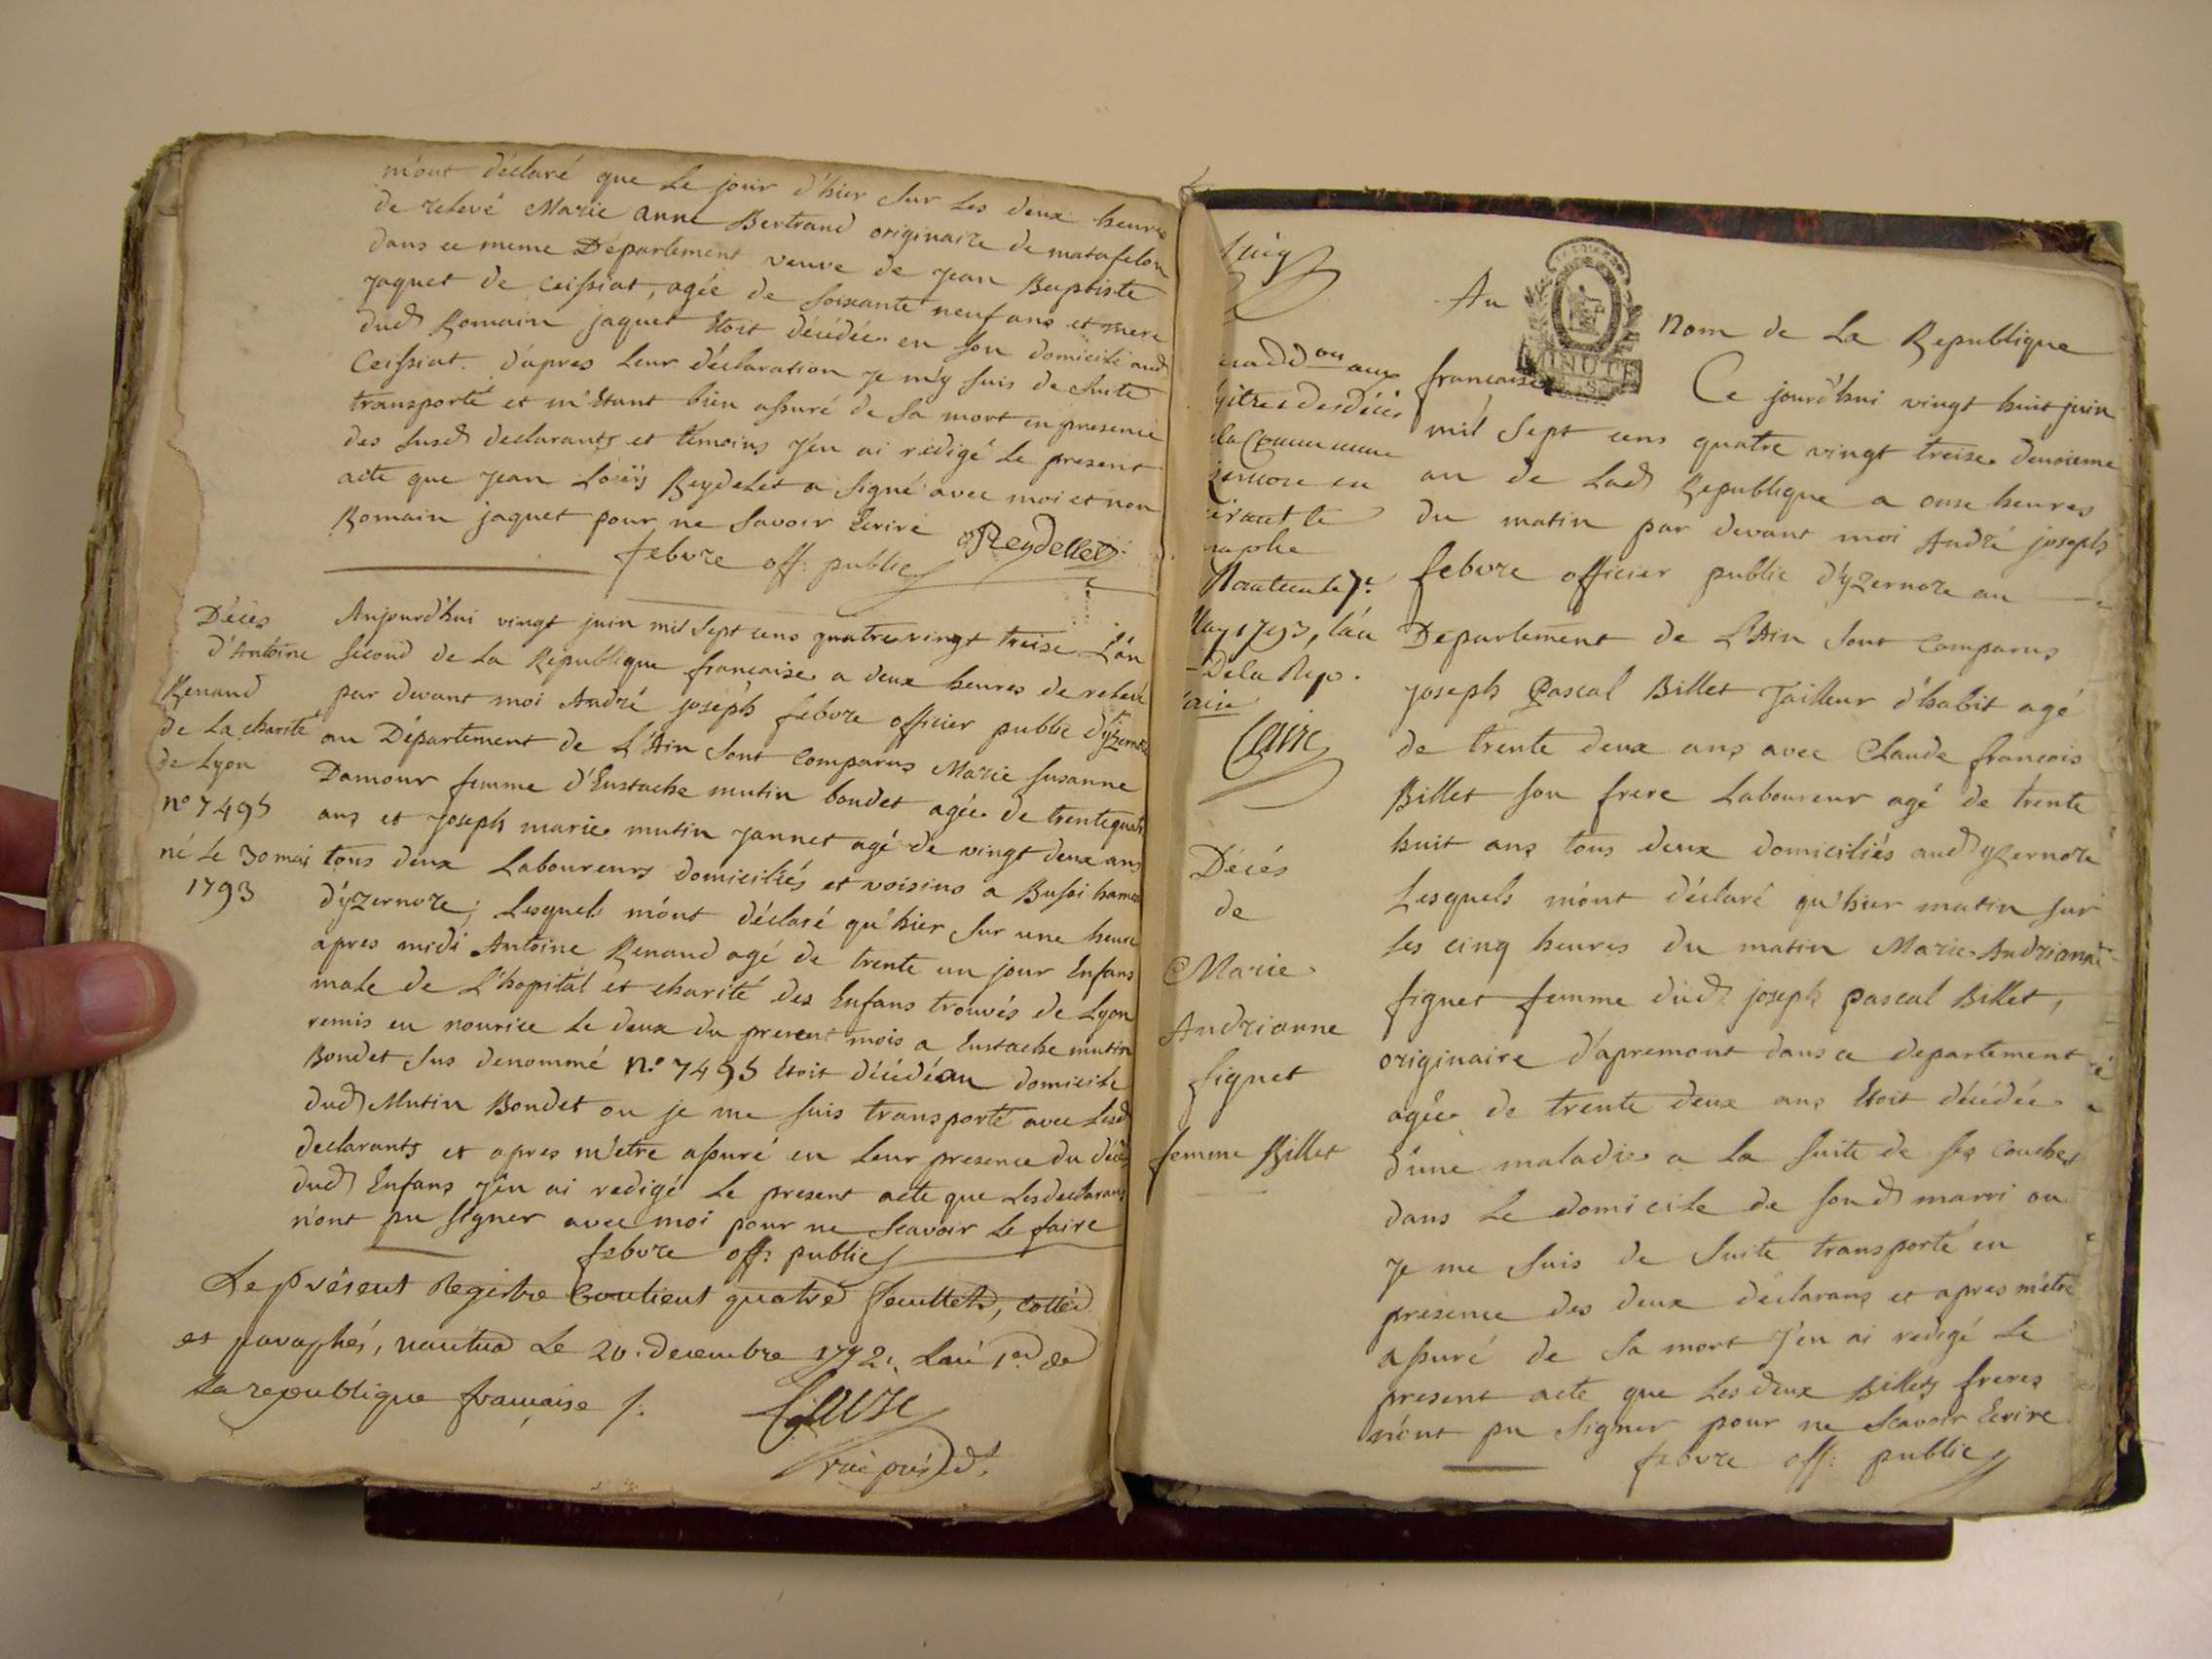 m'ont déclaré que Le jour d'hier sur Les deux heures
de relevé Marie anne Bertrand originaire de matafelon
dans ce meme Département veuve de jean Baptiste
jaquet de Ceissiat, agée de soixante neuf ans et mere
dud Romain jaquet Etoit décédée en son domicile aud
Ceissiat. d'apres Leur déclaration je m'y suis de suite
transporté et m'Etant bien assuré de sa mort en presence
des susd declarants et témoins j'en ai redigé Le present
acte que jean Loüis Reydelet a signé avec moi et non
Romain jaquet pour ne savoir Ecrire Reydellet
febvre off: public
Décès
d'Antoine
Renaud
de La charité
de Lyon
n° 7495
né Le 30 mai
1793
Aujourd'hui vingt juin mil sept cens quatrevingt treise L'an
second de La République francaise a deux heures de relevé
par devant moi André joseph febvre officier public d'yzernore
au Département de L'Ain sont comparus Marie susanne
Damour femme d'Eustache mutin bondet agée de trentequatre
ans et joseph marie mutin jannet agé de vingt deux ans
tous deux Laboureurs domiciliés et voisins a Bussi hameau
d'yzernore; Lesquels m'ont déclaré qu'hier sur une heure
apres midi Antoine Renaud agé de trente un jour Enfans
male de L'hopital et charité des Enfans trouvés de Lyon
remis en nourice Le deux du present mois a Eustache mutin
Bondet sus denommé n° 7495 Etoit décédé au domicile
dud Mutin Bondet ou je me suis transporté avec Lesd
declarants et apres m'etre assuré en Leur presence du décès
dud Enfans j'en ai redigé Le present acte que Les declarans
n'ont pu signer avec moi pour ne scavoir Le faire
febvre off: public
Le présent Registre Contient quatre feuillets, cottés
et paraphés, nantua Le 20. decembre 1792. L'an 1er de
La republique francaise /.
au
gitres des décès
la Commune
zernore en
Nantua le 7e
May 1793, l'an
De la Rep.
Décés
de
Marie
Andrianne
figuet
femme Billet
Au nom de La Republique
MINUTE
francaise Ce jourd'hui vingt huit juin
mil sept cens quatre vingt treise deuxieme
an de Lad Republique a onse heures
du matin par devant moi André joseph
febvre officier public d'yzernore au
Département de L'Ain sont comparus
joseph Pascal Billet Tailleur d'habit agé
de trente deux ans avec Claude francois
Billet son frere Laboureur agé de trente
huit ans tous deux domiciliés aud yzernore
Lesquels m'ont déclaré qu'hier matin sur
Les cinq heures du matin Marie Andrianne
figuet femme dud joseph pascal Billet,
originaire d'apremont dans ce departement
agée de trente deux ans Etoit décédée
d'une maladie a La suite de ses couches
dans Le domicile de sond marri ou
je me suis de suite transporté en
présence des deux déclarans et apres m'etre
assuré de sa mort j'en ai redigé Le
present acte que Les deux Billets freres
n'ont pu signer pour ne scavoir Ecrire
febvre off: public